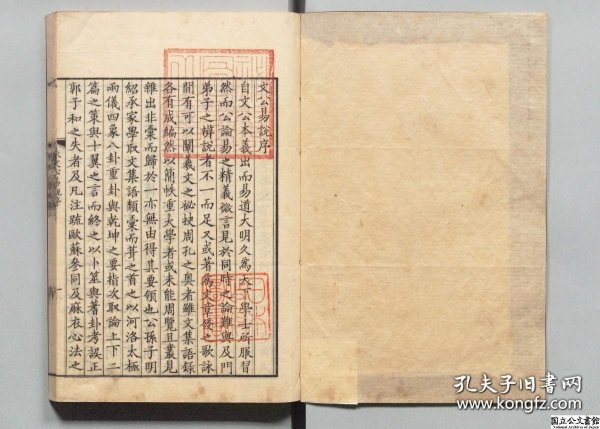 文公易說序
自文公本義出而易道大明久為天下學士所服習
然而公論易之精義微言見於同時之論難與及門
弟子之辨說者不一而足又或著為文章後之歌詠
間有可以闡羲文之秘抉周孔之奧者雖文集語錄
各有成編然以簡帙重大學者或未能周覽且叢見
雜出非彙而歸於一亦無由得其要領也公孫子明
紹承家學取文集語類彙而葺之首之以河洛太極
兩儀四象八卦重卦與乾坤之要指次取論上下二
篇之策與十翼之言而終之以卜筮與著卦考誤正
郭子和之失者及凡注疏歐蘇參同及麻衣心法之
孔夫子旧书网
www.kongfz.com
国立公文書館
National Archives of Japan